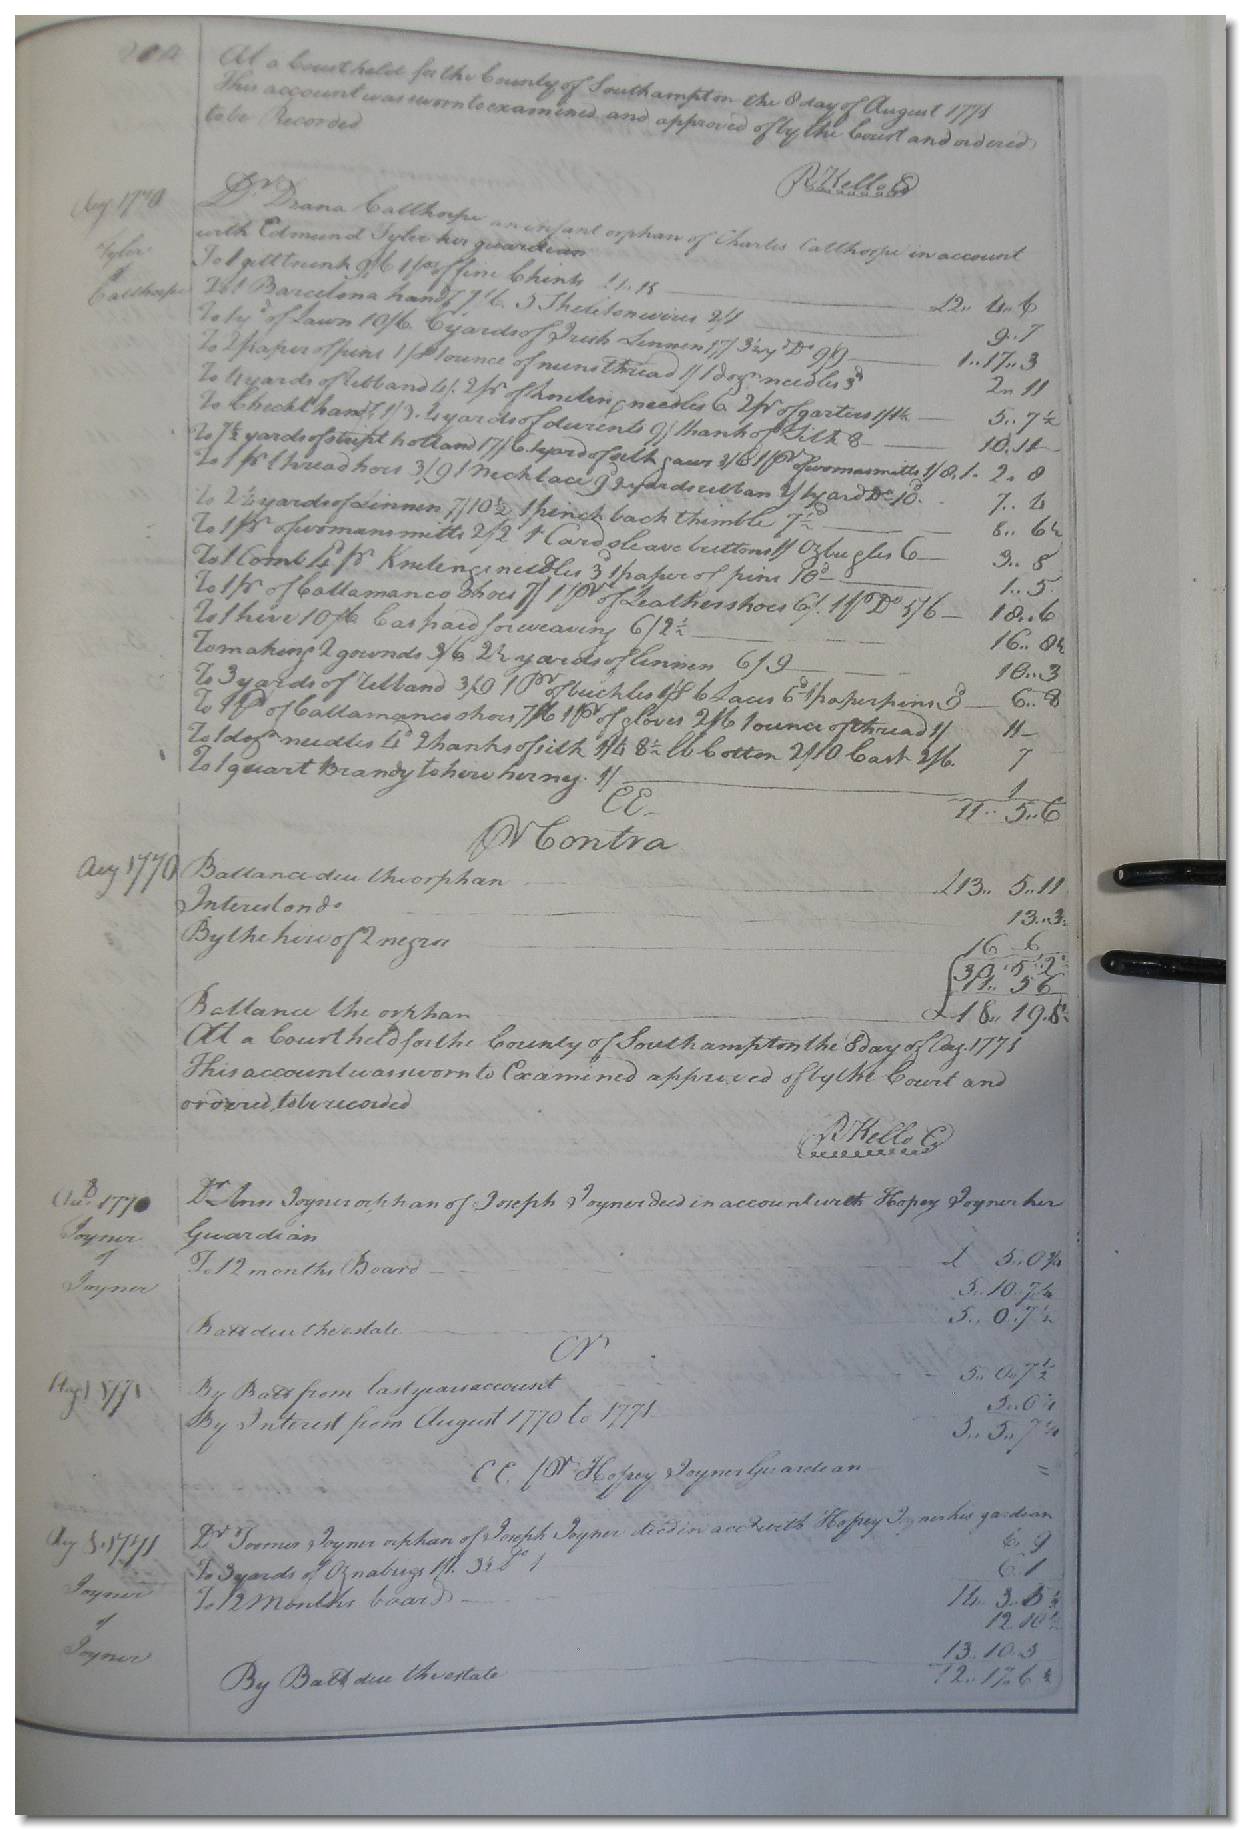 At a Court held for the County of Southampton the 8 day of August 1771
This account was sworn to examined and approved of by the Court and ordered
to be Recorded
R Kello C
Aug 1770
Dr. Diana Calthorpe an infant orphan of Charles Calthorpe in account
with Edmund Tyler her guardian
Tyler
of
Calthorpe
To 1 gilt trunk 9/6 1 ps of fine Chints £1.15 £2.. 4..6
To 1 Barcelona handf 7/6. 3 Skeleton wires 2/1 9..7
To 1 yd of Lawn 10/6. 6 yards of Irish Linnen 17/ 3½ yd Do 9/9 1..17..3
To 2 paper of pins 1/8 1 ounce of nuns thread 1/ 1 dozn needles 3d 2..11
To 4 yards of Ribband 4/. 2 pr of kniting needles 6 2 pr of garters 1/1½ 5..7½
To Check hanf 1/3. 4 yards of durents 9/ 1 hank of Silk 8 10..11
To 7½ yards of stript holland 17/6 yard of silk gaus 3/6 1 pr of womans mitts 1/8. 1. 2..8
To 1 pr thread hoes 3/9 1 Necklace 9d 2 yards ribban 2/ 1 yard Do 10d. 7..4
To 2¼ yards of Linnen 7/10½ 1 pinch back thimble 7½d 8..6½
To 1 pr of womans mitts 2/2 1 Card sleave buttons 1/ Oz bugles 6 3..8
To 1 Comb 4d pr Kniting needles 3d 1 paper of pins 10d 1..5
To 1 pr of Callamanco Shoes 7/ 1 pr of Leather shoes 6/. 1 pr Do 5/6 18..6
To 1 hive 10/6 Cas paid for weaving 6/2½ 16..8½
To making 2 gownds 3/6 2½ yards of linnen 6/9 10..3
To 3 yards of Ribband 3/0 1 pr of buckles 1/8 6 Laces 6d 1 paper pins 8 6..8
To 1 pr of Callamanco shoes 7/6 1 pr of gloves 2/6 1 ounce of thread 1/ 11
To 1 dozn needles 4d 2 hanks of silk 1/4 8½ lb Cotton 2/10 Cash 2/6. 7
To 1 quart Brandy to hire her ny. 1/ 1
EE. 11.. 5..6
Pr Contra
Aug 1770
Ballance due the orphan £13.. 5..11
Interest on do 13..3
By the hire of 2 negroe 16 6
30.. 5..2
11.. 5 6
Ballance the orphan 18.. 19.8
At a Court held for the County of Southampton the 8 day of Aug. 1771
This account was sworn to Examined appreved of by the Court and
ordered to be recorded
R Kello C
1770
Joyner
of
Joyner
Dr Ann Joyner orphan of Joseph Joyner decd in account with Hopey Joyner her
Guardian
To 12 months Board £ 5..0¾
5..10..7¼
Balla due the estate 5.. 0..7½
Cr
Aug 1771
By Balla from last years account 5..0..7½
By Interest from August 1770 to 1771 5..0¼
5.. 5..7¾
EE. pr Hopey Joyner Guardian
Aug 8. 1771
Dr Toomer Joyner orphan of Joseph Joyner decd in acct with Hopey Joyner his gardian
Joyner
of
Joyner
To 3 yards of Oznabrigs 6..9
To 12 Months board 6.1
14. 3..8½
12.10½
13.10.3
By Balla due the estate 12..17..6½